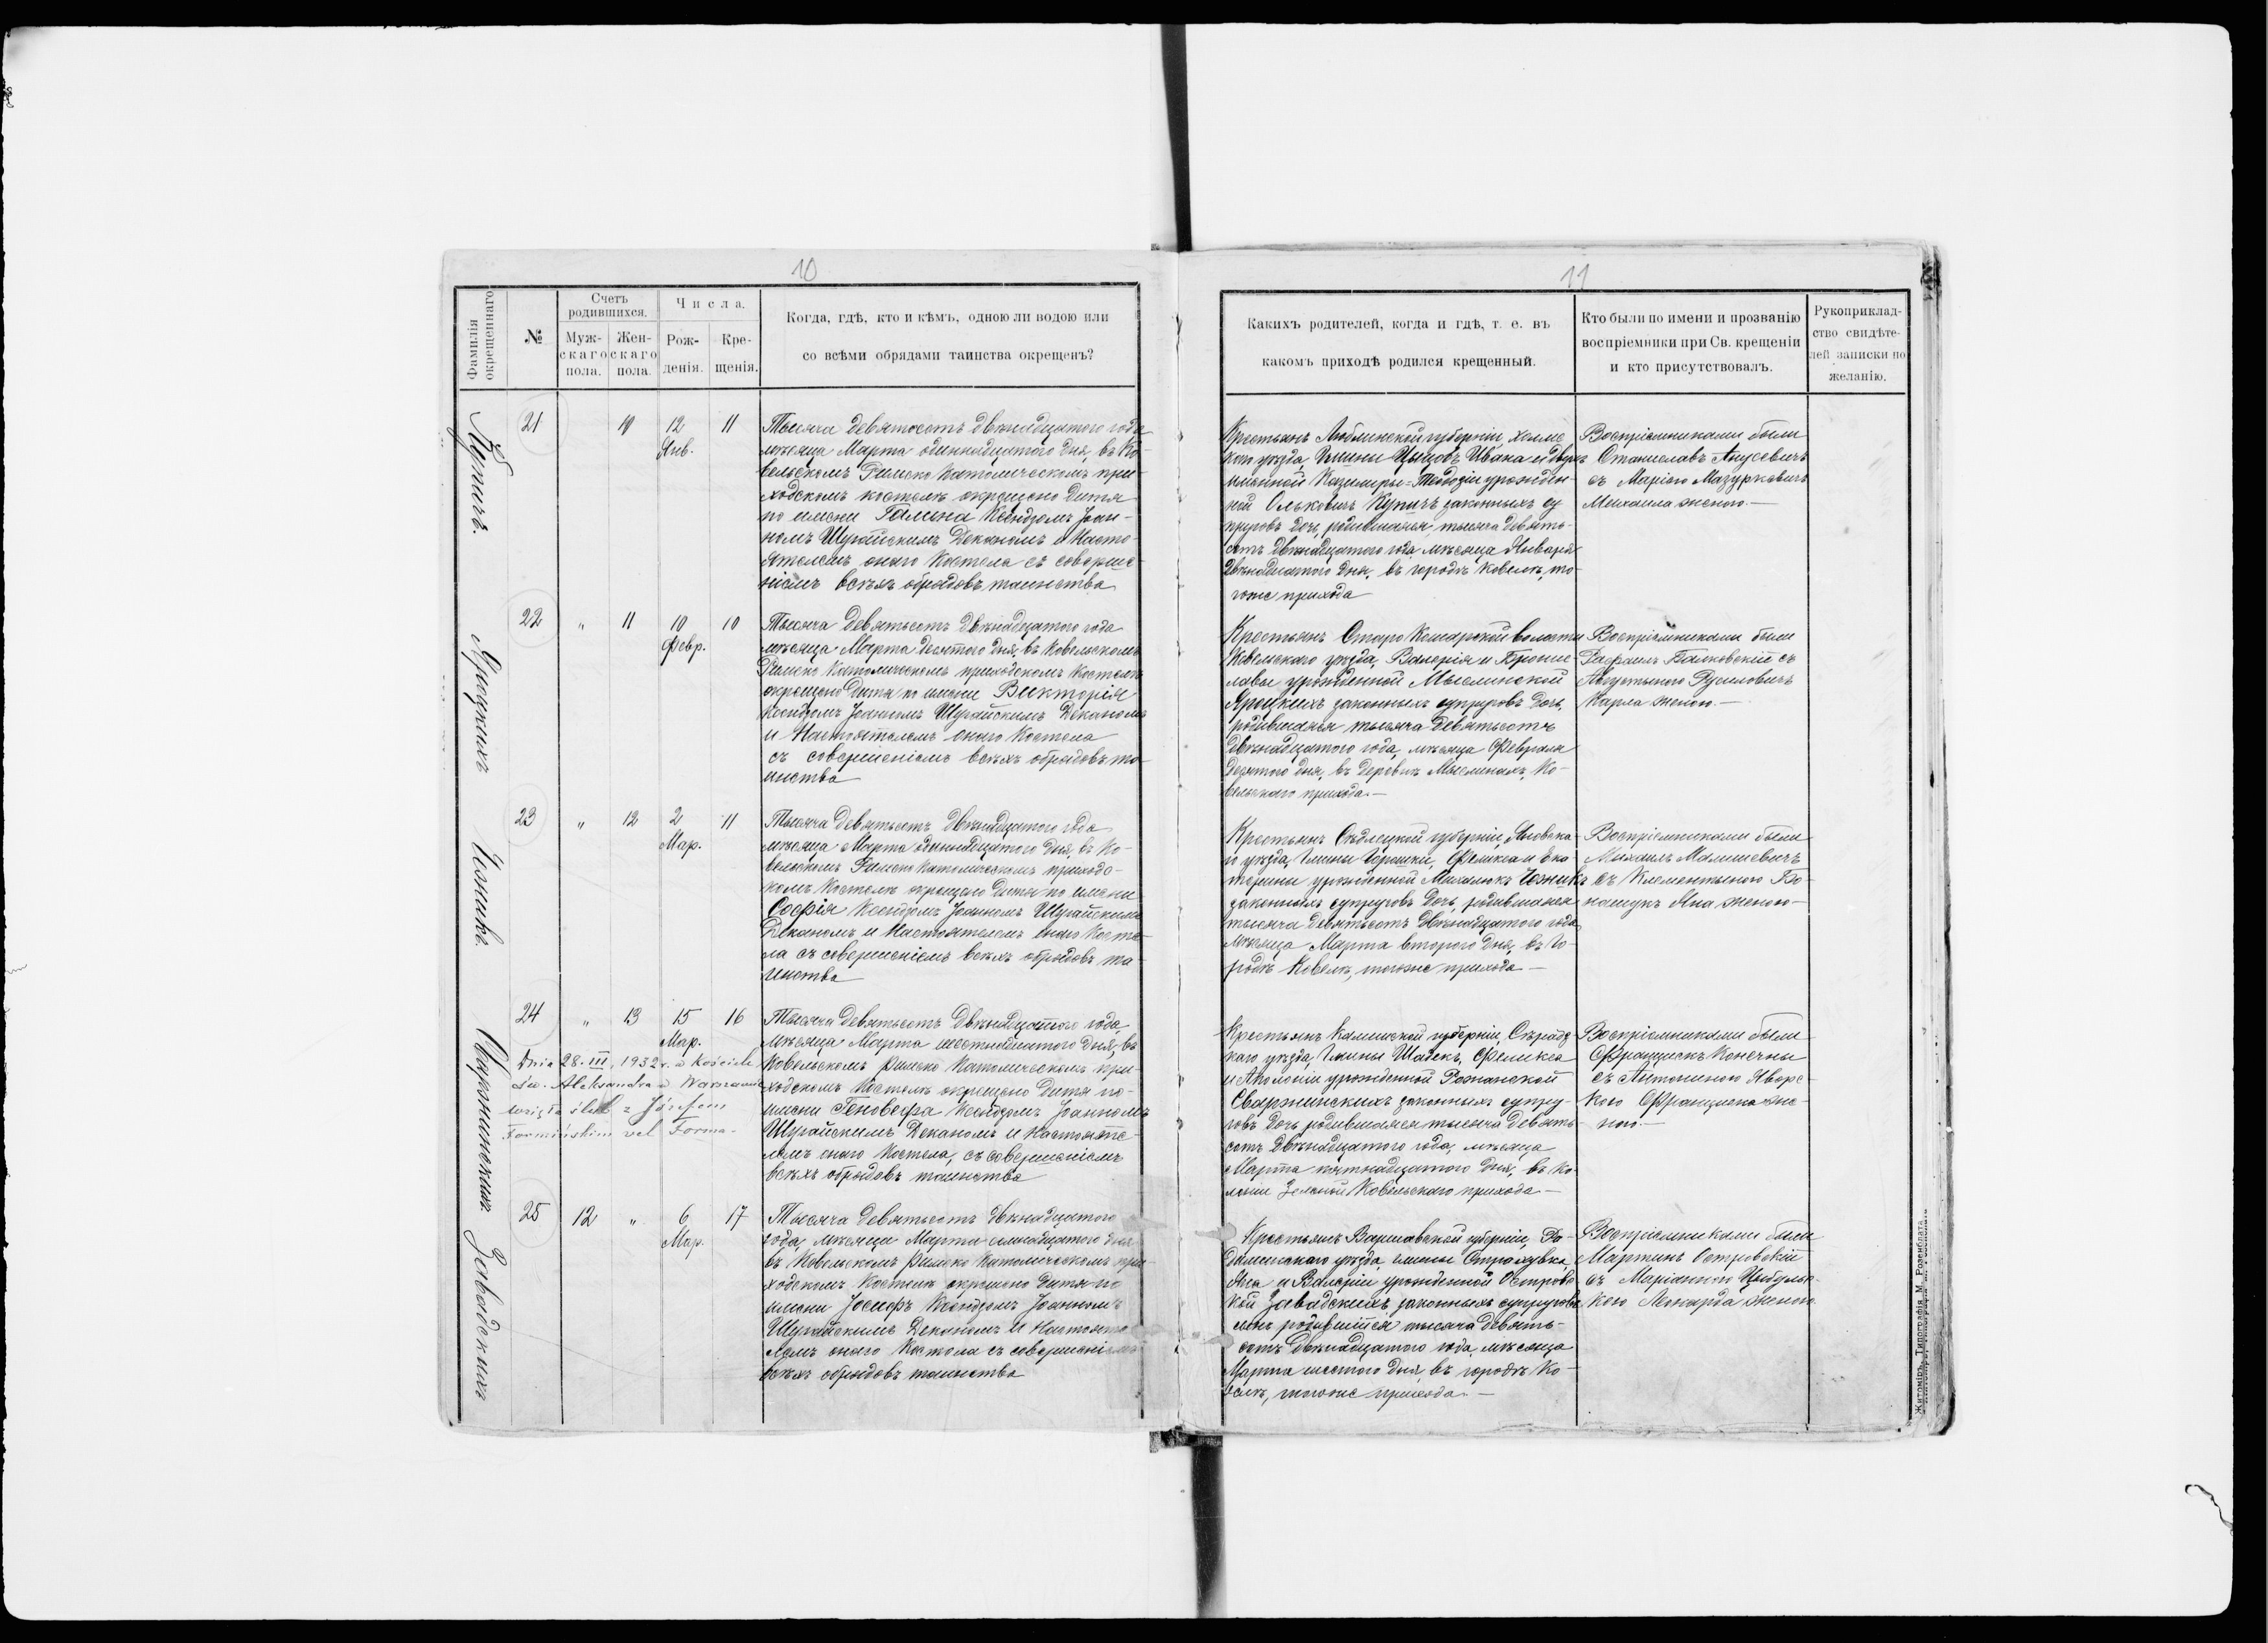 10
Фамилія окрещеннаго
№
Счетъ родившихся.
Муж-скаго пола.
Жен-скаго пола.
Числа.
Рож-денія.
Кре-щенія.
Когда, гдѣ, кто и кѣмъ, одною ли водою или
со всѣми обрядами таинства окрещенъ?
Купичъ.
21
10
12
Янв.
11
Тысяча девятьсотъ двѣнадцатого года
мѣсяца Марта одиннадцатого дня, въ Ко-
вельскомъ Римско Католическомъ при-
ходскомъ костелѣ окрещено дитя
по имени Галина Ксендзомъ Іоан-
номъ Шурайскимъ Деканомъ и Насто-
ятелемъ онаго Костела съ соверше-
ніемъ всѣхъ обрядовъ таинства
Яроцкихъ
22
"
11
10
Февр.
10
Тысяча девятьсотъ двѣнадцатого года
мѣсяца Марта десятого дня, въ Ковельскомъ
Римско Католическомъ приходскомъ Костелѣ
окрещено дитя по имени Викторія
Ксендзомъ Іоанномъ Шурайскимъ Деканомъ
и Настоятелемъ онаго Костела
съ совершеніемъ всѣхъ обрядовъ та-
инства
23
"
12
2
Мар.
11
Тысяча девятьсотъ двѣнадцатого года
мѣсяца Марта одиннадцатого дня, въ Ко-
вельскомъ Римско Католическомъ приход-
скомъ Костелѣ окрещено дитя по имени
Софія Ксендзомъ Іоанномъ Шурайскимъ
Деканомъ и Настоятелемъ онаго Косте-
ла съ совершеніемъ всѣхъ обрядовъ та-
инства
Сваржинскихъ
24
"
13
15
Мар.
16
Dnia 28.III.1932 r. w kościele
św. Aleksandra w Warszawie
wzięła ślub z Józefem
Formińskim vel Forma-
Тысяча девятьсотъ двѣнадцатого года,
мѣсяца Марта шестнадцатого дня, въ
Ковельскомъ Римско Католическомъ при-
ходскомъ Костелѣ окрещено дитя по
имени Геновефа Ксендзомъ Іоанномъ
Шурайскимъ Деканомъ и Настояте-
лемъ онаго Костела, съ совершеніемъ
всѣхъ обрядовъ таинства
Завадскихъ
25
12
"
6
Мар.
17
Тысяча девятьсотъ двѣнадцатого
года, мѣсяца Марта семнадцатого дня
въ Ковельскомъ Римско Католическомъ при-
ходскомъ Костелѣ окрещено дитя по
имени Іосифъ Ксендзомъ Іоанномъ
Шурайскимъ Деканомъ и Настояте-
лемъ онаго Костела съ совершеніемъ
всѣхъ обрядовъ таинства
11
Какихъ родителей, когда и гдѣ, т. е. въ
какомъ приходѣ родился крещенный.
Кто были по имени и прозванію
воспріемники при Св. крещеніи
и кто присутствовалъ.
Рукоприклад-
ство свидѣте-
лей записки по
желанію.
Крестьянъ Люблинской губерніи, Холмс
каго уѣзда, Гмины Цыцовъ Ивана и двухъ
именной Казимиры-Теодозіи урожден-
ной Олькович Купичъ законныхъ су
пруговъ дочь, родившаяся тысяча девять-
сотъ двѣнадцатого года мѣсяца Января
двѣнадцатого дня, въ городѣ Ковелѣ, то-
гоже прихода
Воспріемниками были
Станиславъ Янусевичъ
съ Маріею Мазуркевичъ
Михаила женою.—
Крестьянъ Старо Кошарской волости
Ковельскаго уѣзда, Валерія и Брони-
славы урожденной Мыслинской
Яроцкихъ законныхъ супруговъ дочь,
родившаяся тысяча девятьсотъ
двѣнадцатого года, мѣсяца Февраля
десятого дня, въ деревнѣ Мыслинахъ, Ко-
вельскаго прихода.—
Воспріемниками были
Рафаилъ Балковскій съ
Августыною Русиловичъ
Карла женою.—
Крестьянъ Сѣдлецкой губерніи, Яновска-
го уѣзда, Гмины Горошки, Феликса и Ека-
терины урожденной Михалюкъ
законныхъ супруговъ дочь, родившаяся
тысяча девятьсотъ двѣнадцатого года,
мѣсяца Марта второго дня, въ го-
родѣ Ковелѣ, тогоже прихода—
Воспріемниками были
Михаилъ Малишевичъ
съ Клементыною Бо-
нащукъ Яна женою—
Крестьянъ Калишской губерніи, Сѣрадз
каго уѣзда, Гмины Шадекъ, Феликса
и Аполоніи урожденной Рожанской
Сваржинскихъ законныхъ супру-
говъ дочь родившаяся тысяча девять-
сотъ двѣнадцатого года, мѣсяца
Марта пятнадцатого дня, въ ко-
лоніи Зеленой Ковельскаго прихода—
Воспріемниками были
Францискъ Конечны
съ Антониною Яворс-
кою Франциска же-
ною.—
Крестьянъ Варшавской губерніи, Ра-
диминскаго уѣзда, гмины Страхувка,
Яна и Валеріи урожденной Островс-
кой Завадскихъ законныхъ супруговъ
сынъ родившійся тысяча девять-
сотъ двѣнадцатого года, мѣсяца
Марта шестого дня, въ городѣ Ко-
велѣ, тогоже прихода.—
Воспріемниками были
Мартинъ Островскій
съ Маріанною Цыбульс-
кою Леонарда женою.
Житоміръ, Типографія М. Розенблата